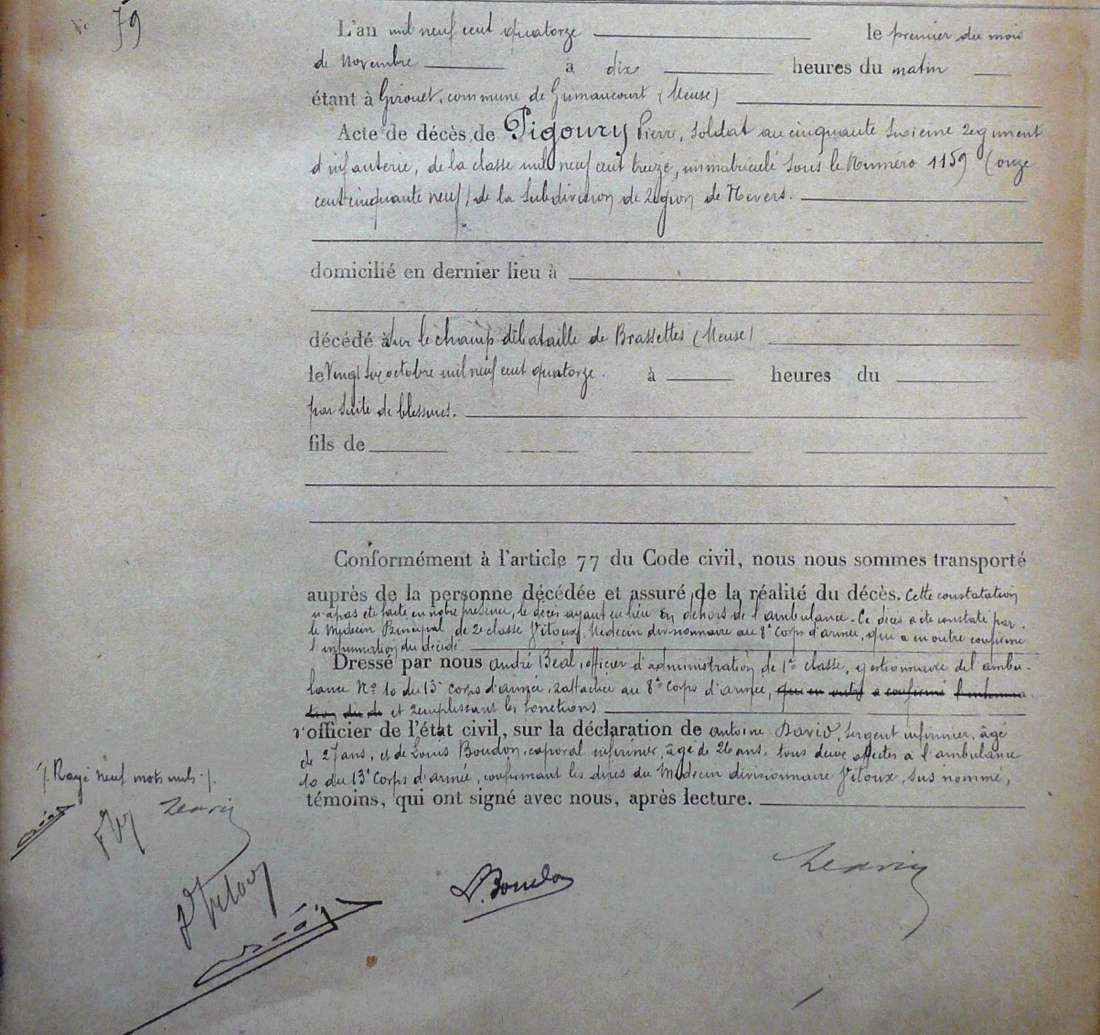 N° 79
L'an mil neuf cent quatorze le premier du mois
de Novembre à dix heures du matin
étant à Girouet, commune de Grimaucourt (Meuse)
Acte de décès de Pigoury Pierre, Soldat au cinquante sixième Régiment
d'infanterie, de la classe mil neuf cent treize, immatriculé sous le Numéro 1159 (onze
cent cinquante neuf) de la Subdivision de Région de Nevers.
domicilié en dernier lieu à
décédé à sur le champ de bataille de Brassettes (Meuse)
le Vingt six octobre mil neuf cent quatorze. à heures du
par suite de blessures.
fils de
Conformément à l'article 77 du Code civil, nous nous sommes transporté
auprès de la personne décédée et assuré de la réalité du décès. Cette constatation
n'a pas été faite en notre présence, le décès ayant eu lieu en dehors de l'ambulance. Ce décès a été constaté par
le Médecin Principal de 2e classe Vitoux, Médecin divisionnaire au 8e Corps d'armée, qui a en outre confirmé
l'inhumation du décédé
Dressé par nous André Béal, officier d'administration de 1re classe, gestionnaire de l'ambu-
lance N° 10 du 13e Corps d'armée, rattachée au 8e Corps d'armée, qui en outre a confirmé l'inhuma-
tion du dé et remplissant les fonctions
d'officier de l'état civil, sur la déclaration de Antoine David, Sergent infirmier, âgé
de 27 ans, et de Louis Boudon, caporal infirmier, âgé de 26 ans, tous deux affectés à l'ambulance
10 du 13e Corps d'armée, confirmant les dires du Médecin divisionnaire Vitoux, sus nommé,
témoins, qui ont signé avec nous, après lecture.
Rayé neuf mots nuls
Vitoux
L. Boudon